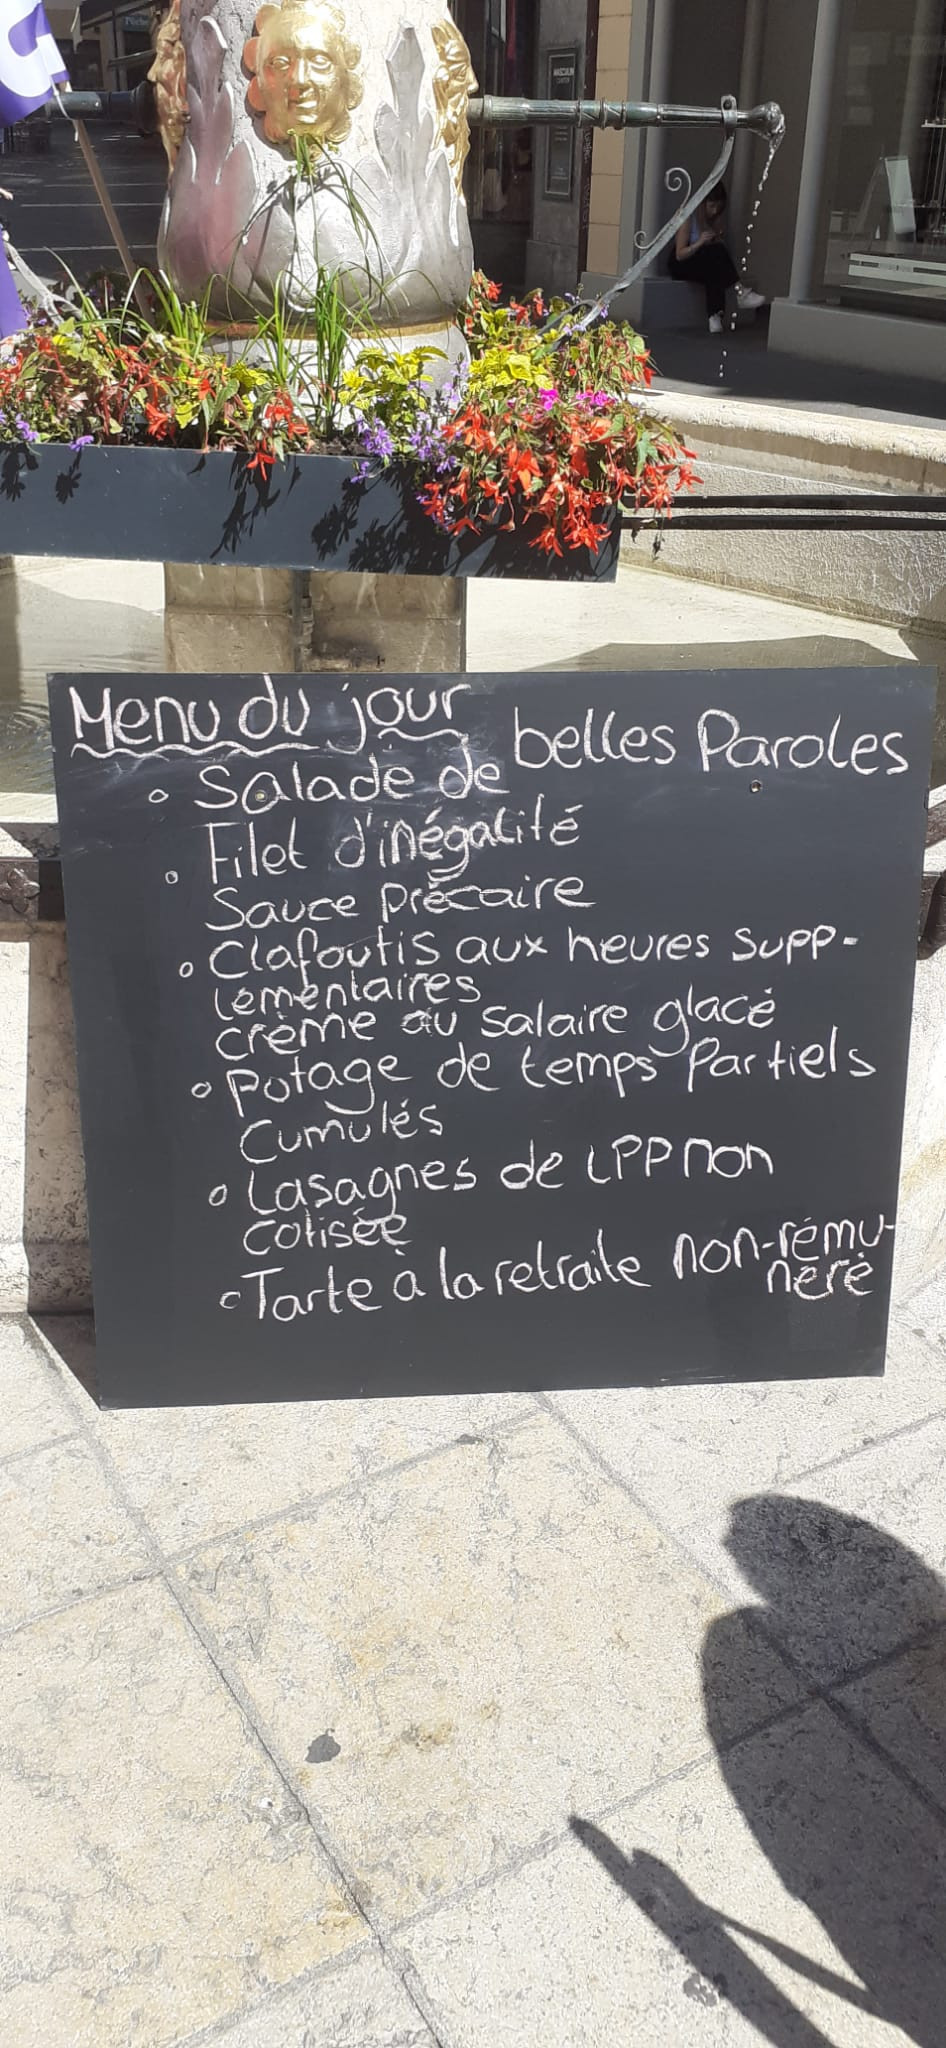 MASCULIN
Menu du jour
° Salade de belles Paroles
° Filet d'inégalité
Sauce précaire
° Clafoutis aux heures supp-
lémentaires
crème au salaire glacé
° Potage de temps Partiels
Cumulés
° Lasagnes de LPP non
cotisée
° Tarte a la retraite non-rému-
néré